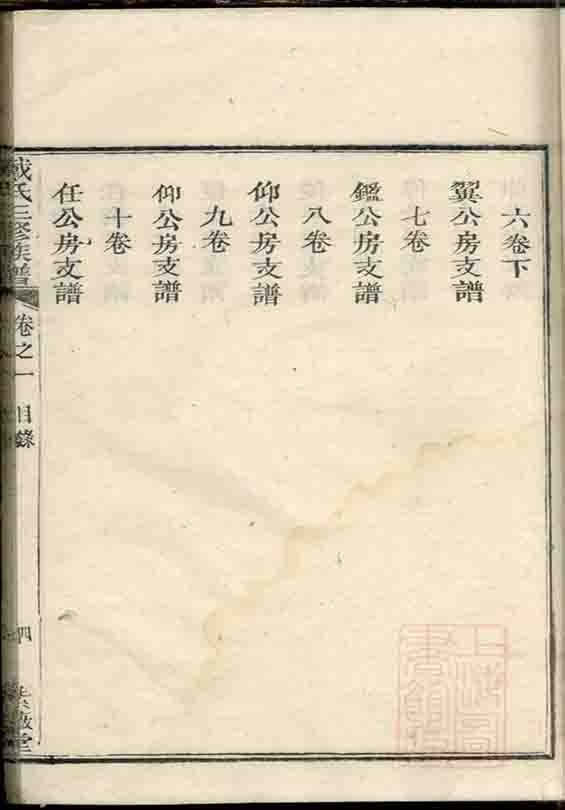 六卷下
翼公房支譜
七卷
鑑公房支譜
八卷
仰公房支譜
九卷
仰公房支譜
十卷
任公房支譜
氏三修族譜
卷之一 目錄
四
堂